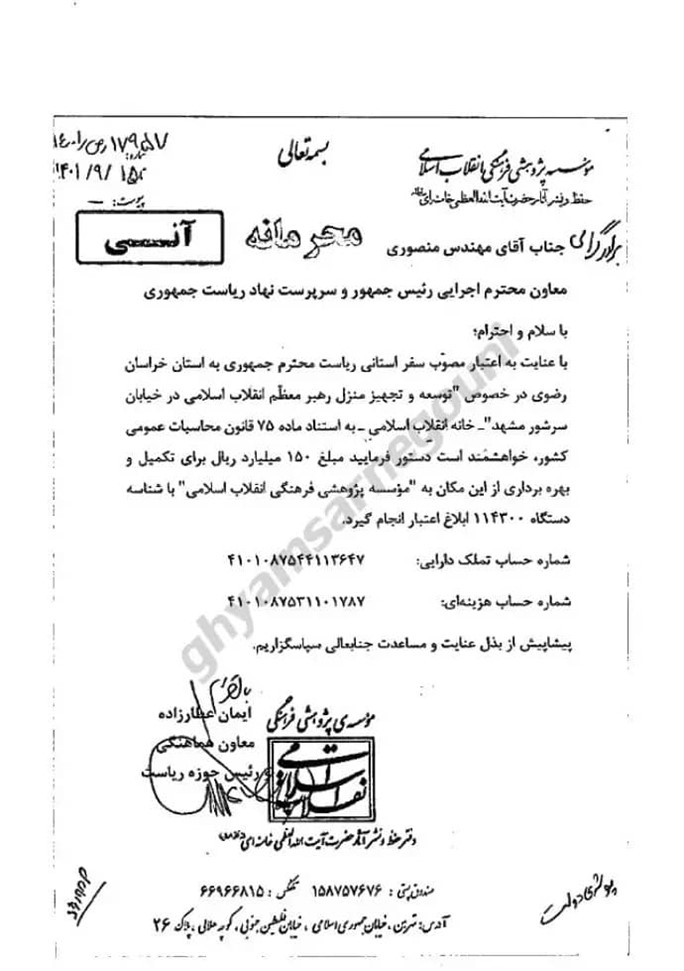 بسمه تعالی
مؤسسه پژوهشی فرهنگی انقلاب اسلامی
حفظ و نشر آثار حضرت آیت الله العظمی خامنه ای
شماره:
۱۴۰۱/۹/۱۵
پیوست: –
آنـــی
محرمانه
برادر گرامی جناب آقای مهندس منصوری
معاون محترم اجرایی رئیس جمهور و سرپرست نهاد ریاست جمهوری
با سلام و احترام؛
با عنایت به اعتبار مصوّب سفر استانی ریاست محترم جمهوری به استان خراسان
رضوی در خصوص "توسعه و تجهیز منزل رهبر معظّم انقلاب اسلامی در خیابان
سرشور مشهد"ـ خانه انقلاب اسلامی ـ به استناد ماده ۷۵ قانون محاسبات عمومی
کشور، خواهشمند است دستور فرمایید مبلغ ۱۵۰ میلیارد ریال برای تکمیل و
بهره برداری از این مکان به "مؤسسه پژوهشی فرهنگی انقلاب اسلامی" با شناسه
دستگاه ۱۱۴۳۰۰ ابلاغ اعتبار انجام گیرد.
شماره حساب تملک دارایی: ۴۱۰۱۰۸۷۵۴۴۱۱۳۶۴۷
شماره حساب هزینه‌ای: ۴۱۰۱۰۸۷۵۳۱۱۰۱۷۸۷
پیشاپیش از بذل عنایت و مساعدت جنابعالی سپاسگزاریم.
ایمان عطارزاده
معاون هماهنگی
و رئیس حوزه ریاست
مؤسسه‌ی پژوهشی فرهنگی
انقلاب اسلامی
دفتر حفظ و نشر آثار حضرت آیت الله العظمی خامنه ای
صندوق پستی: ۱۵۸۷۵۷۶۷۶ تلفکس: ۶۶۹۶۶۸۱۵
آدرس: تهران، خیابان جمهوری اسلامی، خیابان فلسطین جنوبی، کوچه هلالی، پلاک ۲۶
ghyamsarnegouni